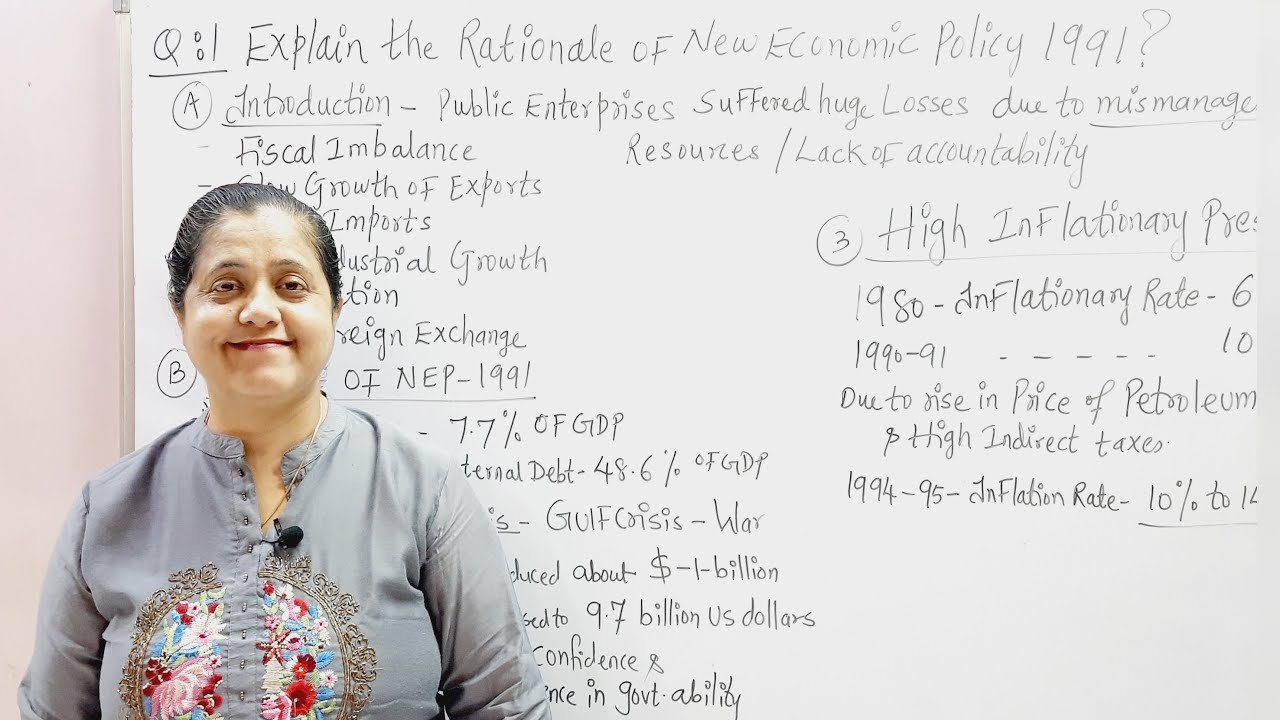 Q:1 Explain the Rationale of New Economic Policy 1991?
(A) Introduction - Public Enterprises Suffered huge Losses due to mismanage
- Fiscal Imbalance
Resources / Lack of accountability
- Growth of Exports
Imports
Growth
Exchange
(B) OF NEP-1991
- 7.7% OF GDP
Debt - 48.6% OF GDP
- Gulf Crisis - War
about $-1-billion
to 9.7 billion US dollars
Confidence &
in govt. ability
(3) High Inflationary
1980 - Inflationary Rate - 6
1990-91 - - - - - 10
Due to rise in Price of Petroleum
& High Indirect taxes.
1994-95 - Inflation Rate - 10% to